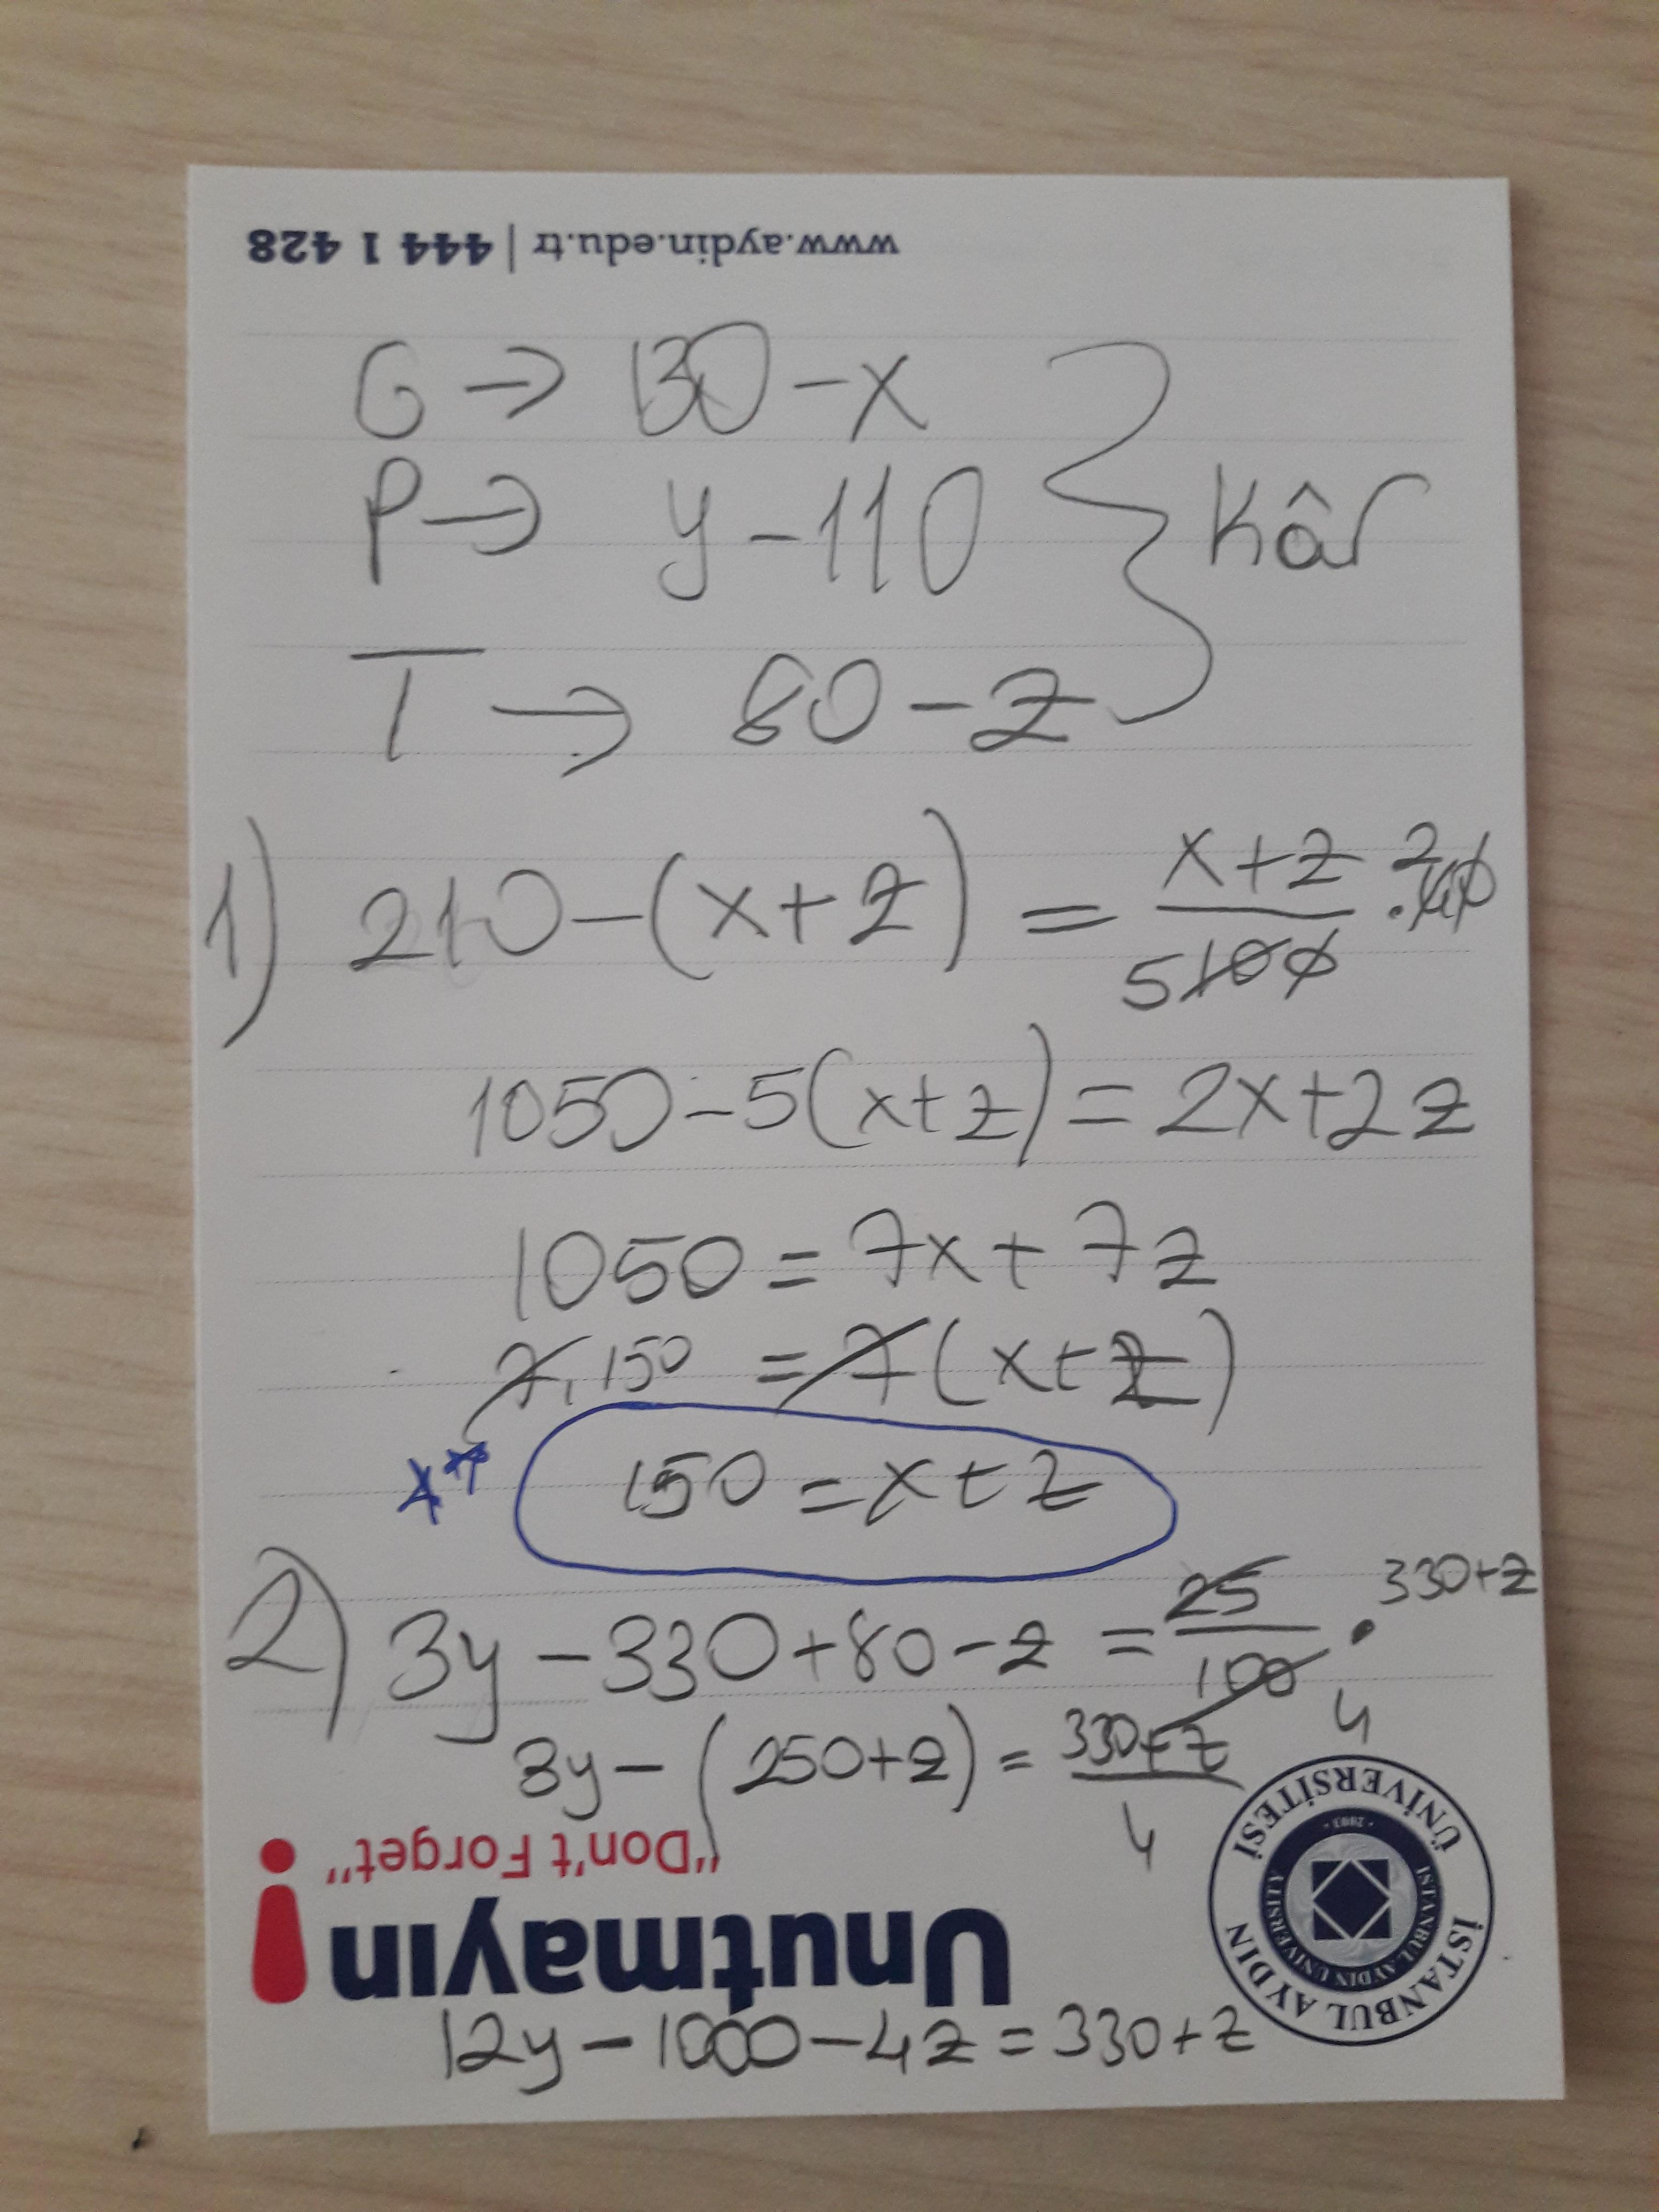 www.aydin.edu.tr | 444 1 428
G → 130 - x
P → y - 110
T → 80 - z
Kâr
1) 210 - (x + z) = x + z / 5 100 . 2 40
1050 - 5(x + z) = 2x + 2z
1050 = 7x + 7z
7.150 = 7(x + z)
** 150 = x + z
2) 3y - 330 + 80 - z = 25 / 100 4 . 330 + z
3y - (250 + z) = 330 + z / 4
"Don't Forget"
Unutmayın!
İSTANBUL AYDIN ÜNİVERSİTESİ
ISTANBUL AYDIN UNIVERSITY
2003
12y - 1000 - 4z = 330 + z